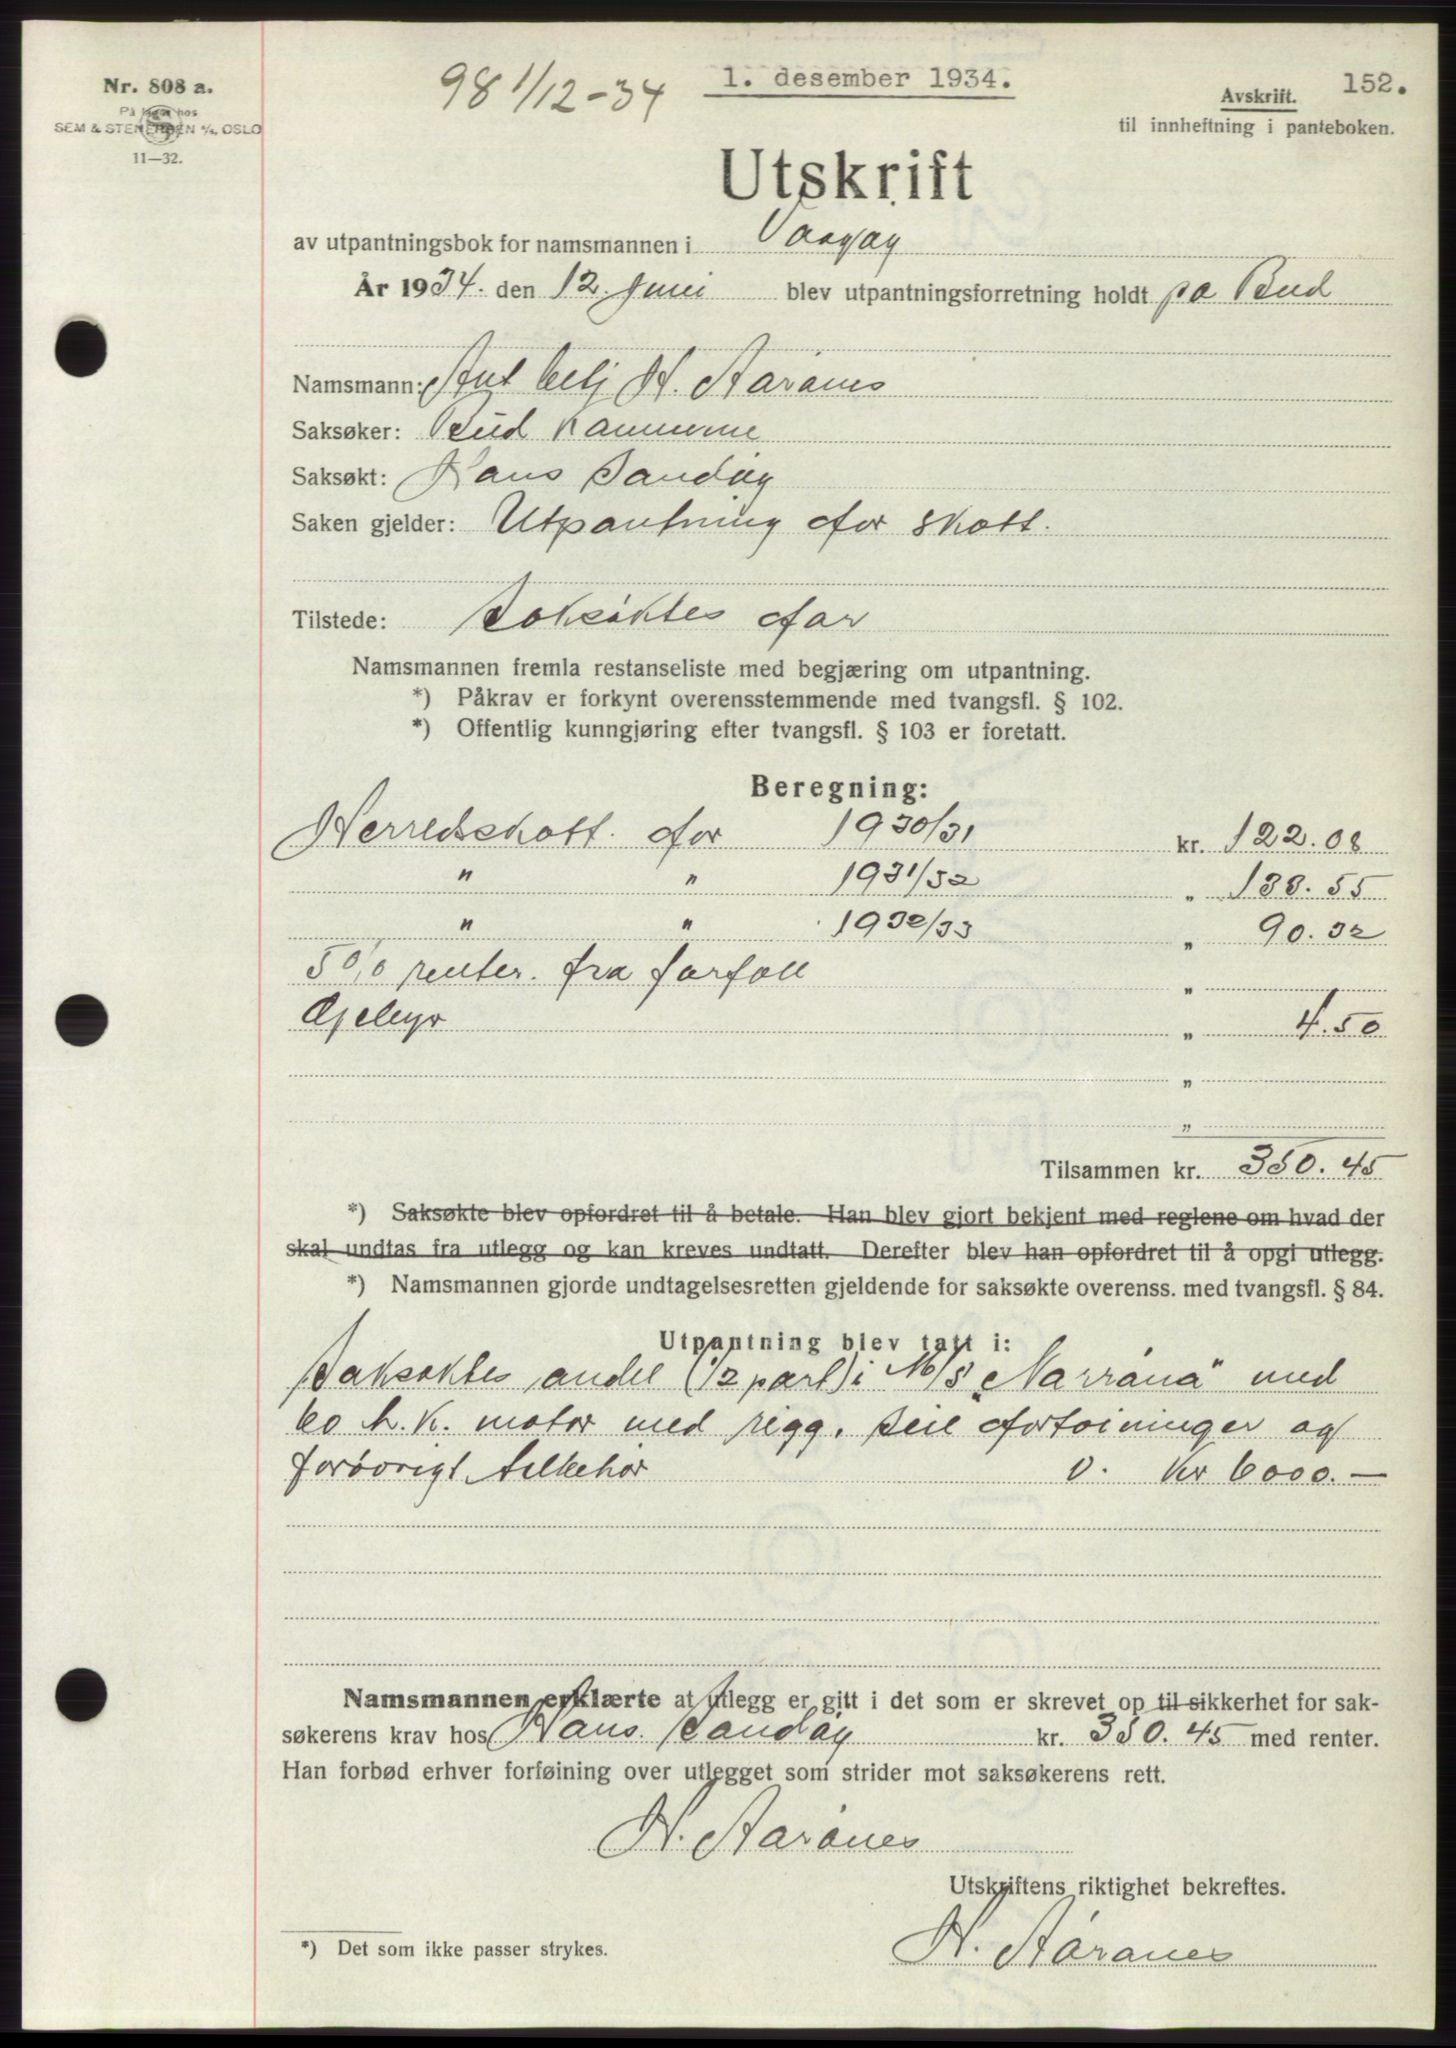 Nr. 808 a.
På lager hos
SEM & STENERSEN A/S, OSLO
11—32.
98 1/12-34
1. desember 1934.
152.
Avskrift.
til innheftning i panteboken.
Utskrift
av utpantningsbok for namsmannen i
År 1934. den 12. juni blev utpantningsforretning holdt på Bud
Namsmann: H. Aarønes
Saksøker: Bud kommune
Saksøkt: Hans Sandøy
Saken gjelder: Utpantning for skatt.
Tilstede: Saksøktes far
Namsmannen fremla restanseliste med begjæring om utpantning.
*) Påkrav er forkynt overensstemmende med tvangsfl. § 102.
*) Offentlig kunngjøring efter tvangsfl. § 103 er foretatt.
Beregning:
Herredsskatt. for 1930/31 kr. 122.08
" " 1931/32 " 133.55
" " 1932/33 " 90.32
5 % renter. fra forfall "
Gebyr " 4.50
"
"
Tilsammen kr. 350.45
*) Saksøkte blev opfordret til å betale. Han blev gjort bekjent med reglene om hvad der
skal undtas fra utlegg og kan kreves undtatt. Derefter blev han opfordret til å opgi utlegg.
*) Namsmannen gjorde undtagelsesretten gjeldende for saksøkte overenss. med tvangsfl. § 84.
Utpantning blev tatt i:
Saksøktes andel (1/2 part) i M/S "Narrøna" med
60 h.k. motor med rigg. seil fortøininger og
forøvrigt tilbehør v. kr 6000.—
Namsmannen erklærte at utlegg er gitt i det som er skrevet op til sikkerhet for sak-
søkerens krav hos Hans. Sandøy kr. 350.45 med renter.
Han forbød erhver forføining over utlegget som strider mot saksøkerens rett.
H. Aarønes
Utskriftens riktighet bekreftes.
H. Aarønes
*) Det som ikke passer strykes.